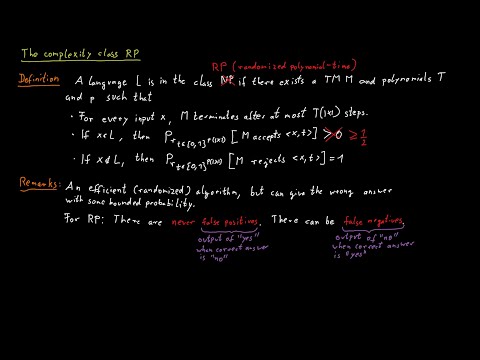 The complexity class RP
RP (randomized polynomial-time)
Definition A language L is in the class NP if there exists a TM M and polynomials T
and p such that
• For every input x, M terminates after at most T(|x|) steps.
• If x∈L, then Pr_{t∈{0,1}^{p(|x|)}} [M accepts <x,t>] > 0 ≥ 1/2
• If x∉L, then Pr_{t∈{0,1}^{p(|x|)}} [M rejects <x,t>] = 1
Remarks: An efficient (randomized) algorithm, but can give the wrong answer
with some bounded probability.
For RP: There are never false positives. There can be false negatives.
output of "yes" when correct answer is "no"
output of "no" when correct answer is "yes"